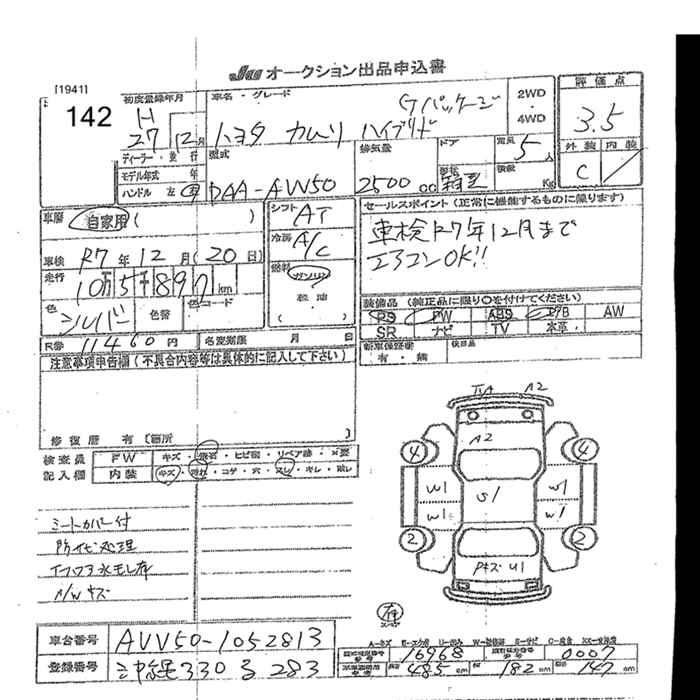 JU オークション出品申込書
[1941]
142
初度登録年月
H 27年12月
車名・グレード
Gパッケージ
トヨタ カムリ ハイブリド
2WD・4WD
評価点
3.5
外装 内装
C
ディーラー・並行
モデル年式 年
ハンドル 左 右
型式
DAA-AVV50
排気量
2500 cc
ドア
5人
Kg
車歴
自家用 ( )
車検 R7年12月(20日)
走行 10万5千897km
色 シルバー 色替 色コード
シフト AT
冷房 A/C
燃料 ガソリン
軽油
( )
セールスポイント(正常に機能するものに限ります)
車検R7年12月まで
エアコンOK!!
装備品(純正品に限り○を付けてください)
PS PW ABS AW
SR ナビ TV 本革
新車保証書 有・無
後日品
R券 11460円
名変期限 月 日
注意事項申告欄(不具合内容等は具体的に記入して下さい)
修復歴 有〔箇所 〕
検査員 FW キズ・飛石・ヒビ割・リペア跡・X要
記入欄 内装 キズ・汚れ・コゲ・穴・スレ・キレ・
シートカバー付
防サビ処理
A2
A2
4 4
W1 S1 W1
W1 W1
2 2
キズ U1
車台番号 AVV50-1052813
登録番号 沖縄330る283
16968 0007
485cm 182cm 147cm